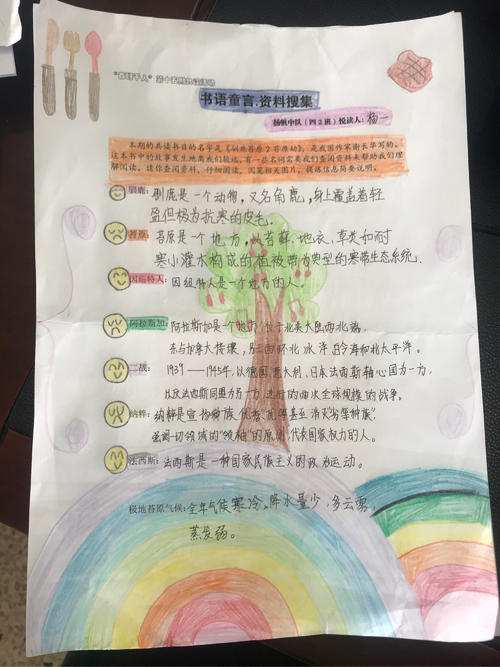 书语童言.资料搜集
扬帆中队(四2班)悦读人:杨一
本期的共读书目的名字是《驯鹿苔原》,是我国作家谢长华写的。
这本书中的故事发生地离我们较远,有一些名词需要我们查阅资料来帮助我们理
解阅读。请你查阅资料,仔细阅读,圈笔相关图片,提炼信息简要说明。
驯鹿:驯鹿是一个动物,又名角鹿,身上覆盖着轻
盈但极为抗寒的皮毛.
苔原:苔原是一个地方,以苔藓、地衣、草类和耐
寒小灌木构成的植被带为典型的寒带生态系统.
因纽特人:因纽特人是一个地方的人。
阿拉斯加:阿拉斯加是个地方,位于北美大陆西北端,
东与加拿大接壤,另三面环北冰洋、白令海和北太平洋。
二战:1939—1945年,以德国、意大利、日本法西斯轴心国为一方,
以反法西斯同盟为另一方,进行的两次全球规模的战争。
纳粹:纳粹是宣扬种族优秀,甚至消灭"劣等种族",
强调一切领域的"领袖"的原则,代表国家权力的人。
法西斯:法西斯是一种国家民族主义的政治运动。
极地苔原气候:全年气候寒冷、降水量少、多云雾,
蒸发弱。